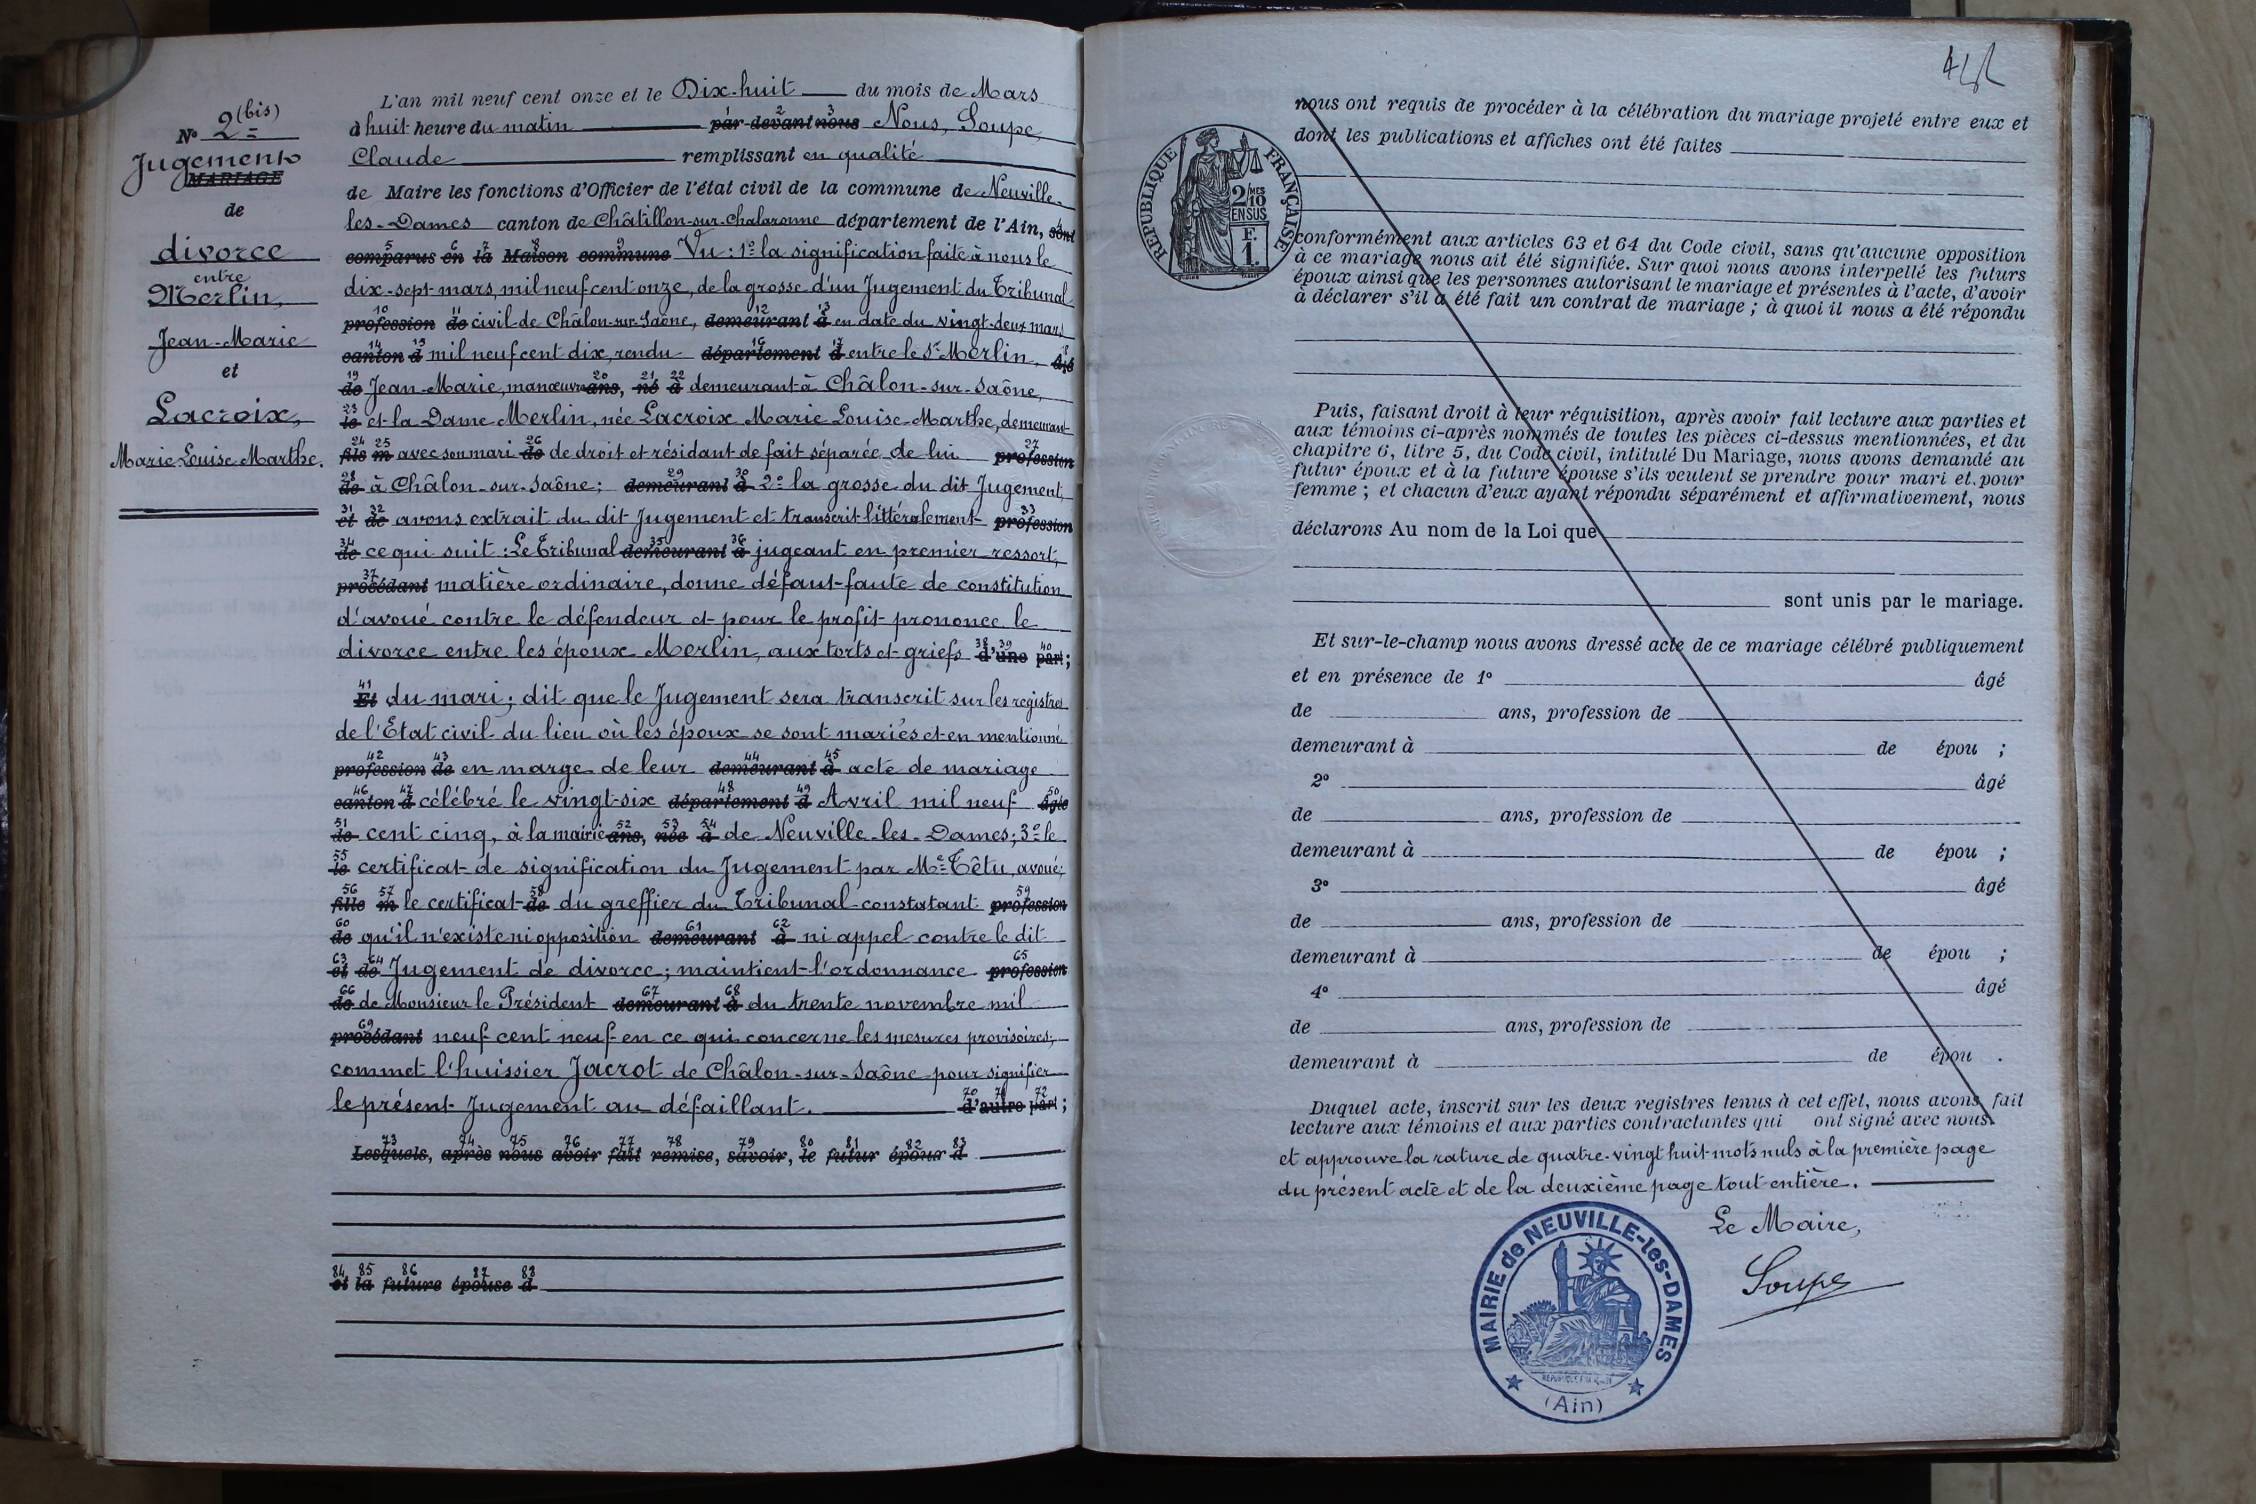 N° 2 (bis)
Jugement
MARIAGE
de
divorce
entre
Merlin,
Jean-Marie
et
Lacroix,
Marie Louise Marthe.
L'an mil neuf cent onze et le Dix-huit du mois de Mars
à huit heure du matin par-devant nous Nous, Soupe,
Claude remplissant en qualité
de Maire les fonctions d'Officier de l'état civil de la commune de Neuville-
les-Dames canton de Châtillon-sur-Chalaronne département de l'Ain, sont
comparus en la Maison commune Vu: 1° la signification faite à nous le
dix-sept mars, mil neuf cent onze, de la grosse d'un Jugement du Tribunal
profession de civil de Châlon-sur-Saône, demeurant à en date du vingt-deux mars
canton d mil neuf cent dix, rendu département d entre le Sr Merlin, âgé
de Jean-Marie, manœuvre ans, né à demeurant à Châlon-sur-Saône,
le et la Dame Merlin, née Lacroix Marie Louise Marthe, demeurant
fils m avec son mari de de droit et résidant de fait séparée de lui profession
de à Châlon-sur-Saône; demeurant à 2° la grosse du dit Jugement,
et de avons extrait du dit Jugement et transcrit littéralement profession
de ce qui suit: Le Tribunal demeurant à jugeant en premier ressort,
procédant matière ordinaire, donne défaut-faute de constitution
d'avoué contre le défendeur et pour le profit prononce le
divorce entre les époux Merlin, aux torts et griefs d'une part;
Et du mari; dit que le Jugement sera transcrit sur les registres
de l'Etat civil du lieu où les époux se sont mariés et en mentionné
profession de en marge de leur demeurant à acte de mariage
canton d célébré le vingt-six département d Avril mil neuf âgée
de cent cinq, à la mairie ans, née à de Neuville-les-Dames; 3° le
le certificat de signification du Jugement par Me Têtu, avoué;
fille m le certificat de du greffier du Tribunal constatant profession
de qu'il n'existe ni opposition demeurant à ni appel contre le dit
et de Jugement de divorce; maintient l'ordonnance profession
de de Monsieur le Président demeurant à du trente novembre mil
procédant neuf cent neuf en ce qui concerne les mesures provisoires;
commet l'huissier Jacrot de Châlon-sur-Saône pour signifier
le présent Jugement au défaillant. d'autre part;
Lesquels, après nous avoir fait remise, savoir, le futur époux d
et la future épouse d
nous ont requis de procéder à la célébration du mariage projeté entre eux et
dont les publications et affiches ont été faites
RÉPUBLIQUE FRANÇAISE
2/10 MES
EN SUS
F.
1.
conformément aux articles 63 et 64 du Code civil, sans qu'aucune opposition
à ce mariage nous ait été signifiée. Sur quoi nous avons interpellé les futurs
époux ainsi que les personnes autorisant le mariage et présentes à l'acte, d'avoir
à déclarer s'il a été fait un contrat de mariage ; à quoi il nous a été répondu
Puis, faisant droit à leur réquisition, après avoir fait lecture aux parties et
aux témoins ci-après nommés de toutes les pièces ci-dessus mentionnées, et du
chapitre 6, litre 5, du Code civil, intitulé Du Mariage, nous avons demandé au
futur époux et à la future épouse s'ils veulent se prendre pour mari et pour
femme ; et chacun d'eux ayant répondu séparément et affirmativement, nous
déclarons Au nom de la Loi que
sont unis par le mariage.
Et sur-le-champ nous avons dressé acte de ce mariage célébré publiquement
et en présence de 1° âgé
de ans, profession de
demeurant à de épou ;
2° âgé
de ans, profession de
demeurant à de épou ;
3° âgé
de ans, profession de
demeurant à de épou ;
4° âgé
de ans, profession de
demeurant à de épou .
Duquel acte, inscrit sur les deux registres tenus à cet effet, nous avons fait
lecture aux témoins et aux parties contractantes qui ont signé avec nous
et approuve la rature de quatre-vingt huit mots nuls à la première page
du présent acte et de la deuxième page tout entière.
Le Maire,
Soupe
MAIRIE de NEUVILLE-les-DAMES
(Ain)